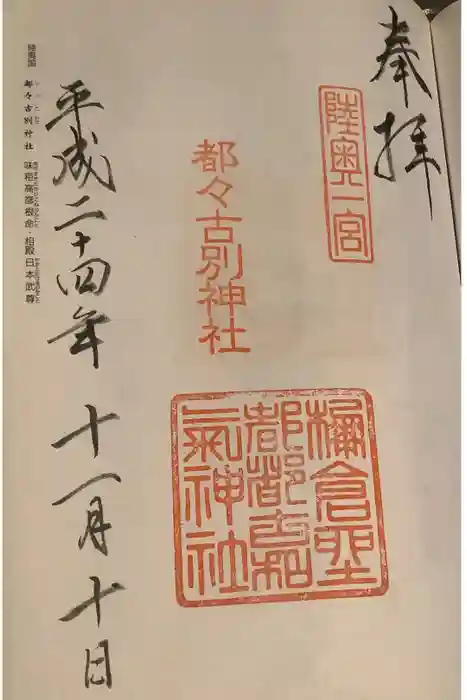 奉拝
陸奥一宮
都々古別神社
倉
都都古和
氣神社
平成二十四年 十一月十日
陸奥国 都々古別神社 味耜高彦根命・相殿日本武尊